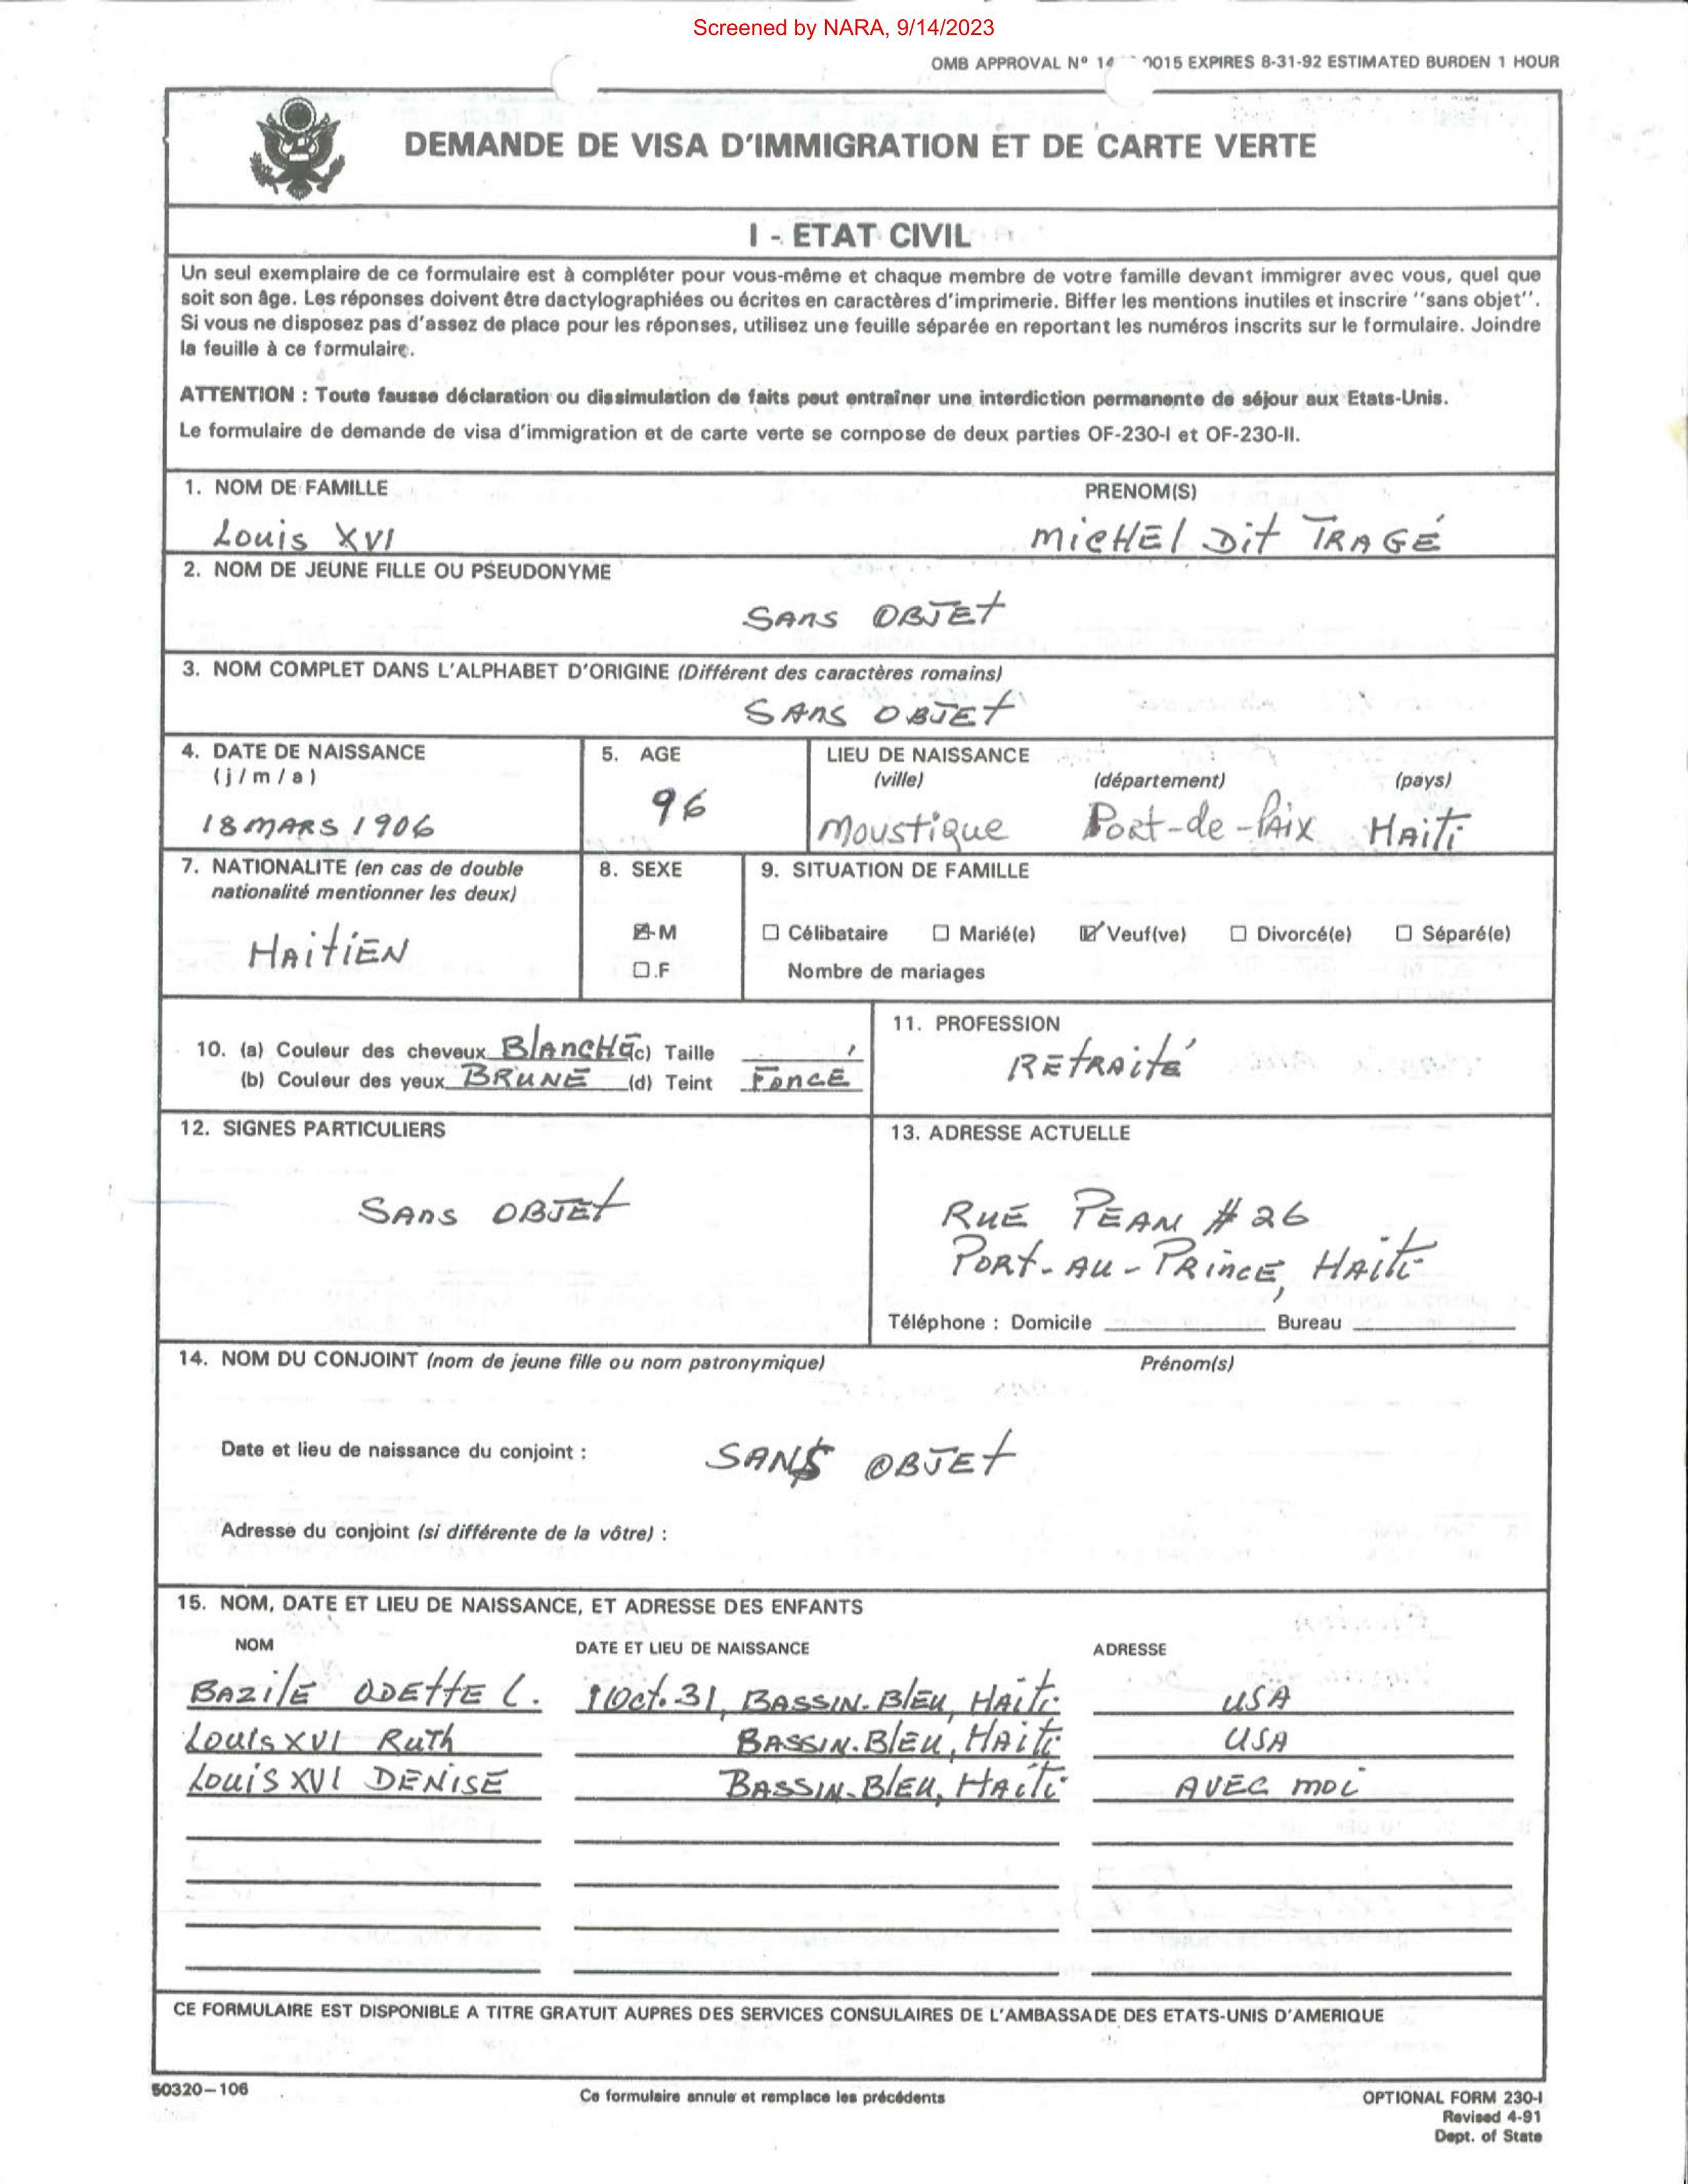 Screened by NARA, 9/14/2023
OMB APPROVAL Nº 14 0015 EXPIRES 8-31-92 ESTIMATED BURDEN 1 HOUR
DEMANDE DE VISA D'IMMIGRATION ET DE CARTE VERTE
I - ETAT CIVIL
Un seul exemplaire de ce formulaire est à compléter pour vous-même et chaque membre de votre famille devant immigrer avec vous, quel que
soit son âge. Les réponses doivent être dactylographiées ou écrites en caractères d'imprimerie. Biffer les mentions inutiles et inscrire ''sans objet''.
Si vous ne disposez pas d'assez de place pour les réponses, utilisez une feuille séparée en reportant les numéros inscrits sur le formulaire. Joindre
la feuille à ce formulaire.
ATTENTION : Toute fausse déclaration ou dissimulation de faits peut entraîner une interdiction permanente de séjour aux Etats-Unis.
Le formulaire de demande de visa d'immigration et de carte verte se compose de deux parties OF-230-I et OF-230-II.
1. NOM DE FAMILLE PRENOM(S)
Louis XVI MICHEL Dit TRAGÉ
2. NOM DE JEUNE FILLE OU PSEUDONYME
SANS OBJET
3. NOM COMPLET DANS L'ALPHABET D'ORIGINE (Différent des caractères romains)
SANS OBJET
4. DATE DE NAISSANCE 5. AGE LIEU DE NAISSANCE
(j/m/a) (ville) (département) (pays)
18 MARS 1906 96 Moustique Port-de-Paix HAITI
7. NATIONALITE (en cas de double 8. SEXE 9. SITUATION DE FAMILLE
nationalité mentionner les deux)
HAITIEN ☒ M ☐ Célibataire ☐ Marié(e) ☑ Veuf(ve) ☐ Divorcé(e) ☐ Séparé(e)
☐ F Nombre de mariages
10. (a) Couleur des cheveux BLANCHE (c) Taille 11. PROFESSION
(b) Couleur des yeux BRUNE (d) Teint FONCE RETRAITÉ
12. SIGNES PARTICULIERS 13. ADRESSE ACTUELLE
SANS OBJET RUE PEAN # 26
PORT-AU-PRINCE, HAITI
Téléphone : Domicile Bureau
14. NOM DU CONJOINT (nom de jeune fille ou nom patronymique) Prénom(s)
Date et lieu de naissance du conjoint : SANS OBJET
Adresse du conjoint (si différente de la vôtre) :
15. NOM, DATE ET LIEU DE NAISSANCE, ET ADRESSE DES ENFANTS
NOM DATE ET LIEU DE NAISSANCE ADRESSE
BAZILE ODETTE L. 1 Oct. 31, BASSIN-BLEU, HAITI USA
Louis XVI Ruth BASSIN-BLEU, HAITI USA
Louis XVI DENISE BASSIN-BLEU, HAITI AVEC MOI
CE FORMULAIRE EST DISPONIBLE A TITRE GRATUIT AUPRES DES SERVICES CONSULAIRES DE L'AMBASSADE DES ETATS-UNIS D'AMERIQUE
50320-106 Ce formulaire annule et remplace les précédents OPTIONAL FORM 230-I
Revised 4-91
Dept. of State